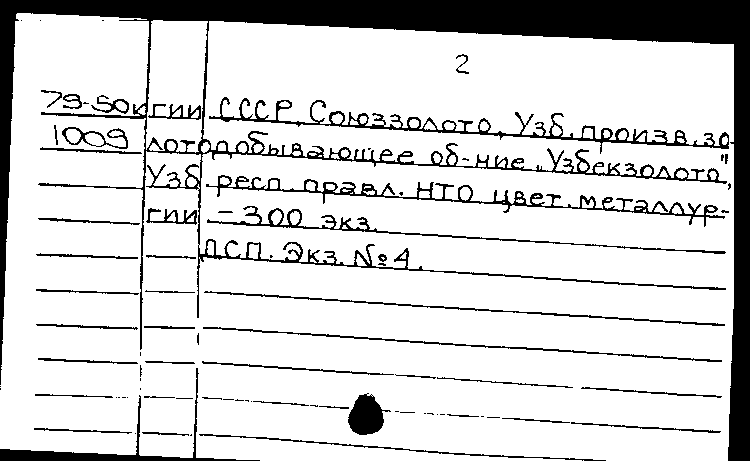 2
79-50к гии СССР, Союззолото, Узб. произв. зо-
1009 лотодобывающее об-ние „Узбекзолото",
Узб. респ. правл. НТО цвет. металлур-
гии – 300 экз.
ДСП. Экз. №4.